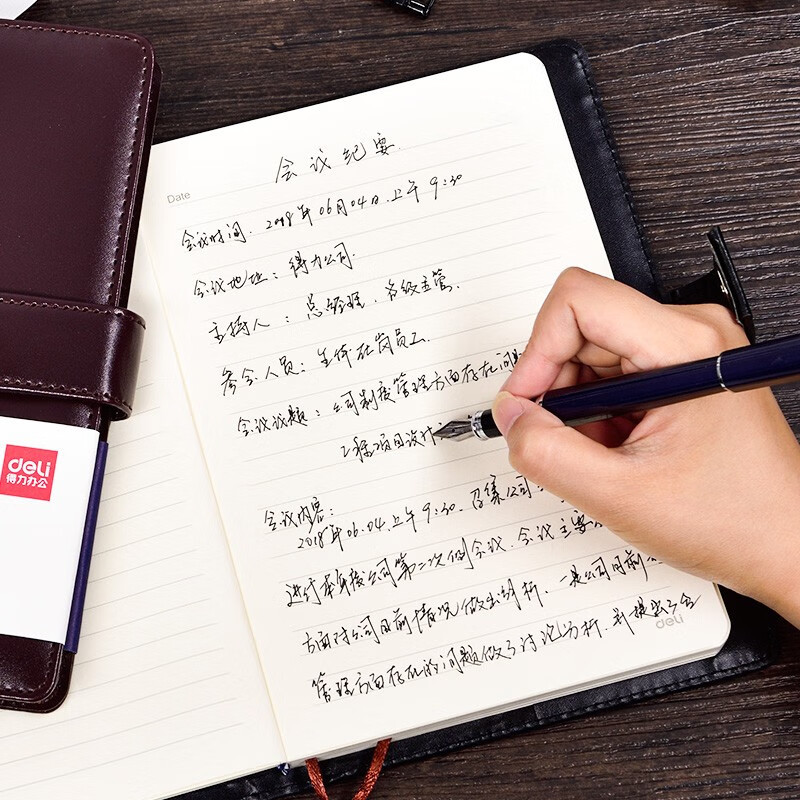 会议纪要
Date
会议时间：2018年06月04日.上午9:30
会议地址：得力公司.
主持人：总经理、各级主管.
参会人员：全体在岗员工.
会议议题：公司制度管理方面存在问题
工程项目设计
会议内容：
2018年06.04.上午9:30.召集公司
进行本年度公司第二次例会议.会议主要
方面对公司目前情况做出剖析.一是公司目前
管理方面存在的问题做了讨论分析.并提出了
deli
deli
得力办公